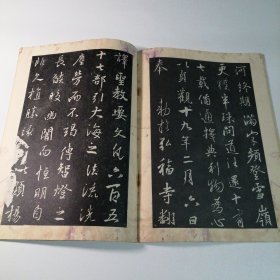 河終期滿字頻登雪嶺
更獲半珠問道往還十有
七載備通釋典利物為心
以貞觀十九年二月六日
奉 勅於弘福寺翻
譯聖教要文凡六百五
十七部引大海之法流洗
塵勞而不竭傳智燈之
長焰皎幽闇而恒明自
非久植勝緣何以顯揚